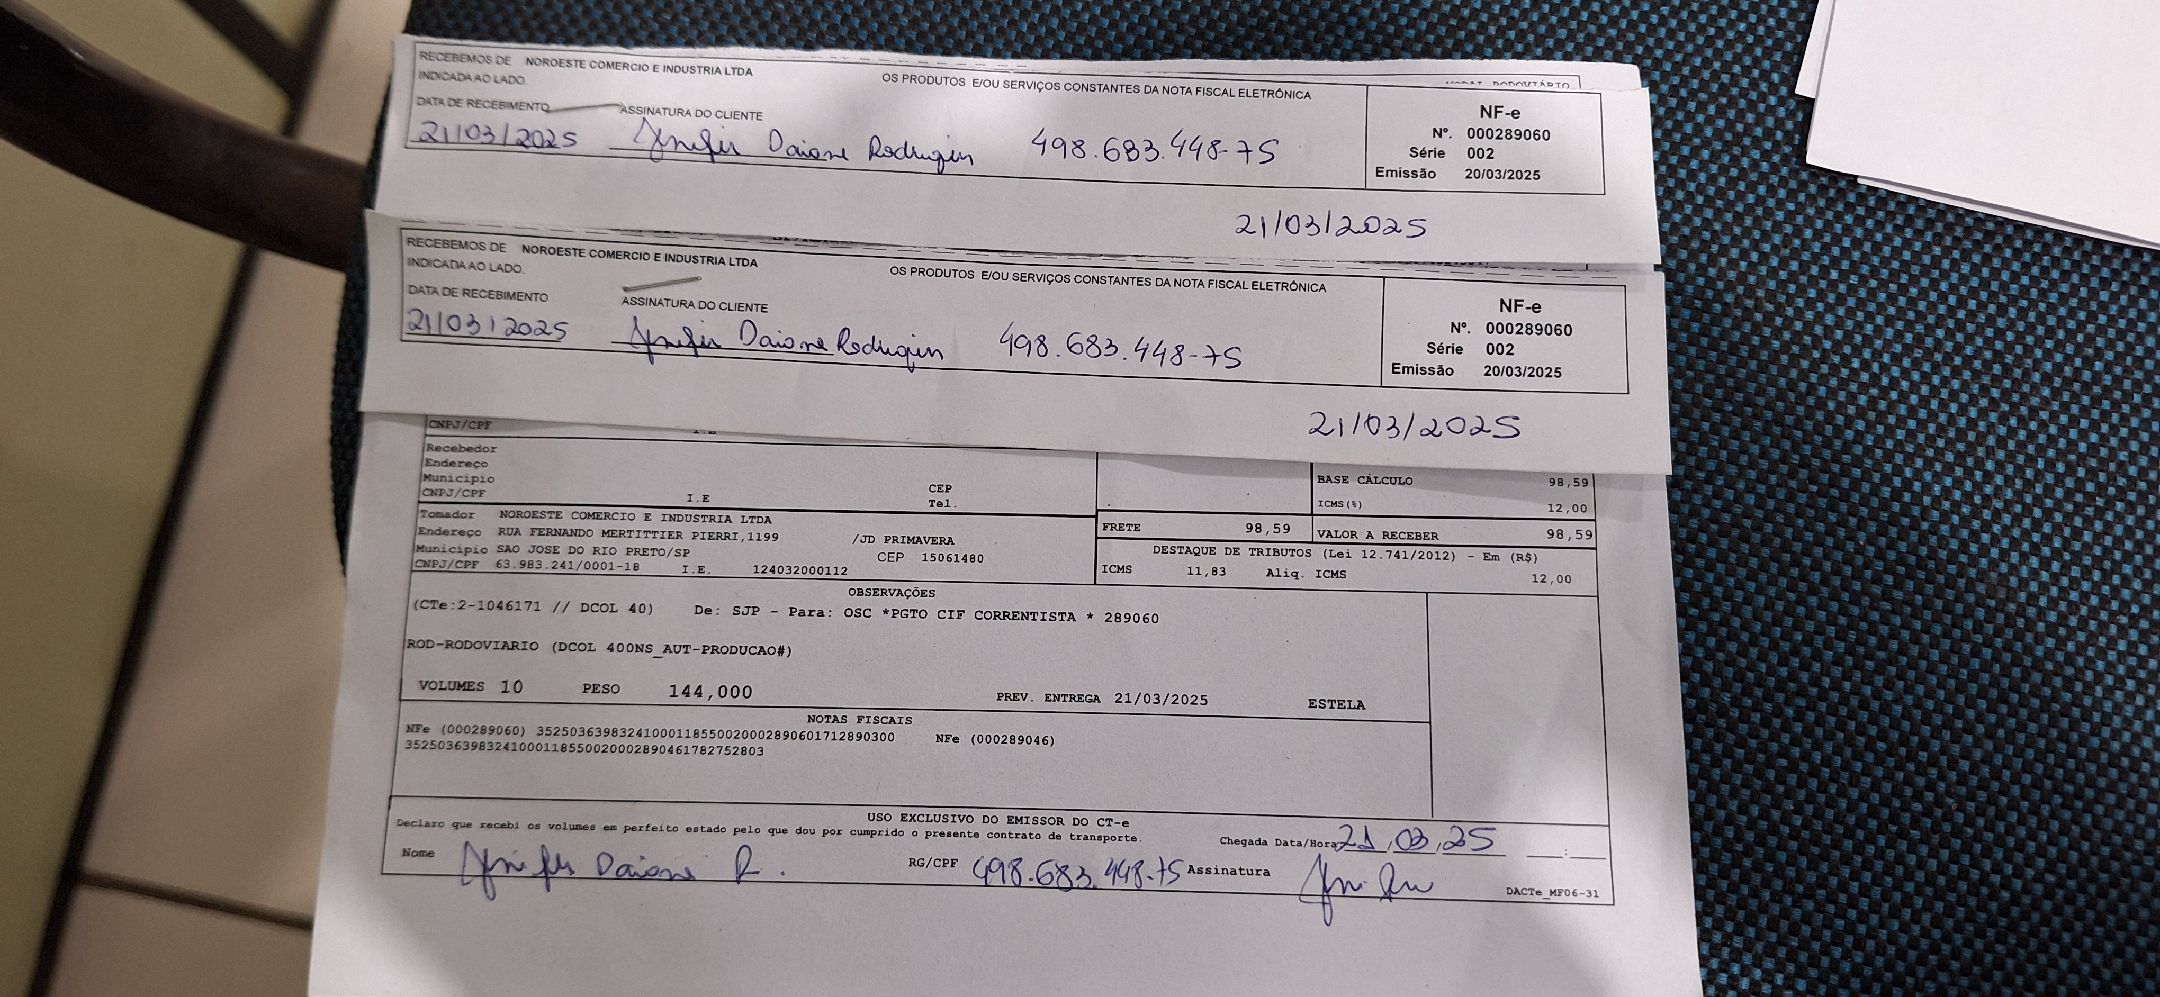 RECEBEMOS DE NOROESTE COMERCIO E INDUSTRIA LTDA OS PRODUTOS E/OU SERVIÇOS CONSTANTES DA NOTA FISCAL ELETRÔNICA
INDICADA AO LADO.
DATA DE RECEBIMENTO ASSINATURA DO CLIENTE
21/03/2025 Jenifer Daiane Rodrigues 498.683.448-75
NF-e
Nº. 000289060
Série 002
Emissão 20/03/2025
21/03/2025
RECEBEMOS DE NOROESTE COMERCIO E INDUSTRIA LTDA OS PRODUTOS E/OU SERVIÇOS CONSTANTES DA NOTA FISCAL ELETRÔNICA
INDICADA AO LADO.
DATA DE RECEBIMENTO ASSINATURA DO CLIENTE
21/03/2025 Jenifer Daiane Rodrigues 498.683.448-75
NF-e
Nº. 000289060
Série 002
Emissão 20/03/2025
21/03/2025
CNPJ/CPF
Recebedor
Endereço
Municipio CEP
CNPJ/CPF I.E Tel.
BASE CÁLCULO 98,59
ICMS(%) 12,00
Tomador NOROESTE COMERCIO E INDUSTRIA LTDA
Endereço RUA FERNANDO MERTITTIER PIERRI,1199 /JD PRIMAVERA
Municipio SAO JOSE DO RIO PRETO/SP CEP 15061480
CNPJ/CPF 63.983.241/0001-18 I.E. 124032000112
FRETE 98,59 VALOR A RECEBER 98,59
DESTAQUE DE TRIBUTOS (Lei 12.741/2012) - Em (R$)
ICMS 11,83 Aliq. ICMS 12,00
OBSERVAÇÕES
(CTe:2-1046171 // DCOL 40) De: SJP - Para: OSC *PGTO CIF CORRENTISTA * 289060
ROD-RODOVIARIO (DCOL 400NS_AUT-PRODUCAO#)
VOLUMES 10 PESO 144,000 PREV. ENTREGA 21/03/2025 ESTELA
NOTAS FISCAIS
NFe (000289060) 35250363983241000118550020002890601712890300 NFe (000289046)
35250363983241000118550020002890461782752803
USO EXCLUSIVO DO EMISSOR DO CT-e
Declaro que recebi os volumes em perfeito estado pelo que dou por cumprido o presente contrato de transporte. Chegada Data/Hora 21,03,25 __:__
Nome Jenifer Daiane R. RG/CPF 498.683.448-75 Assinatura
DACTe_MF06-31